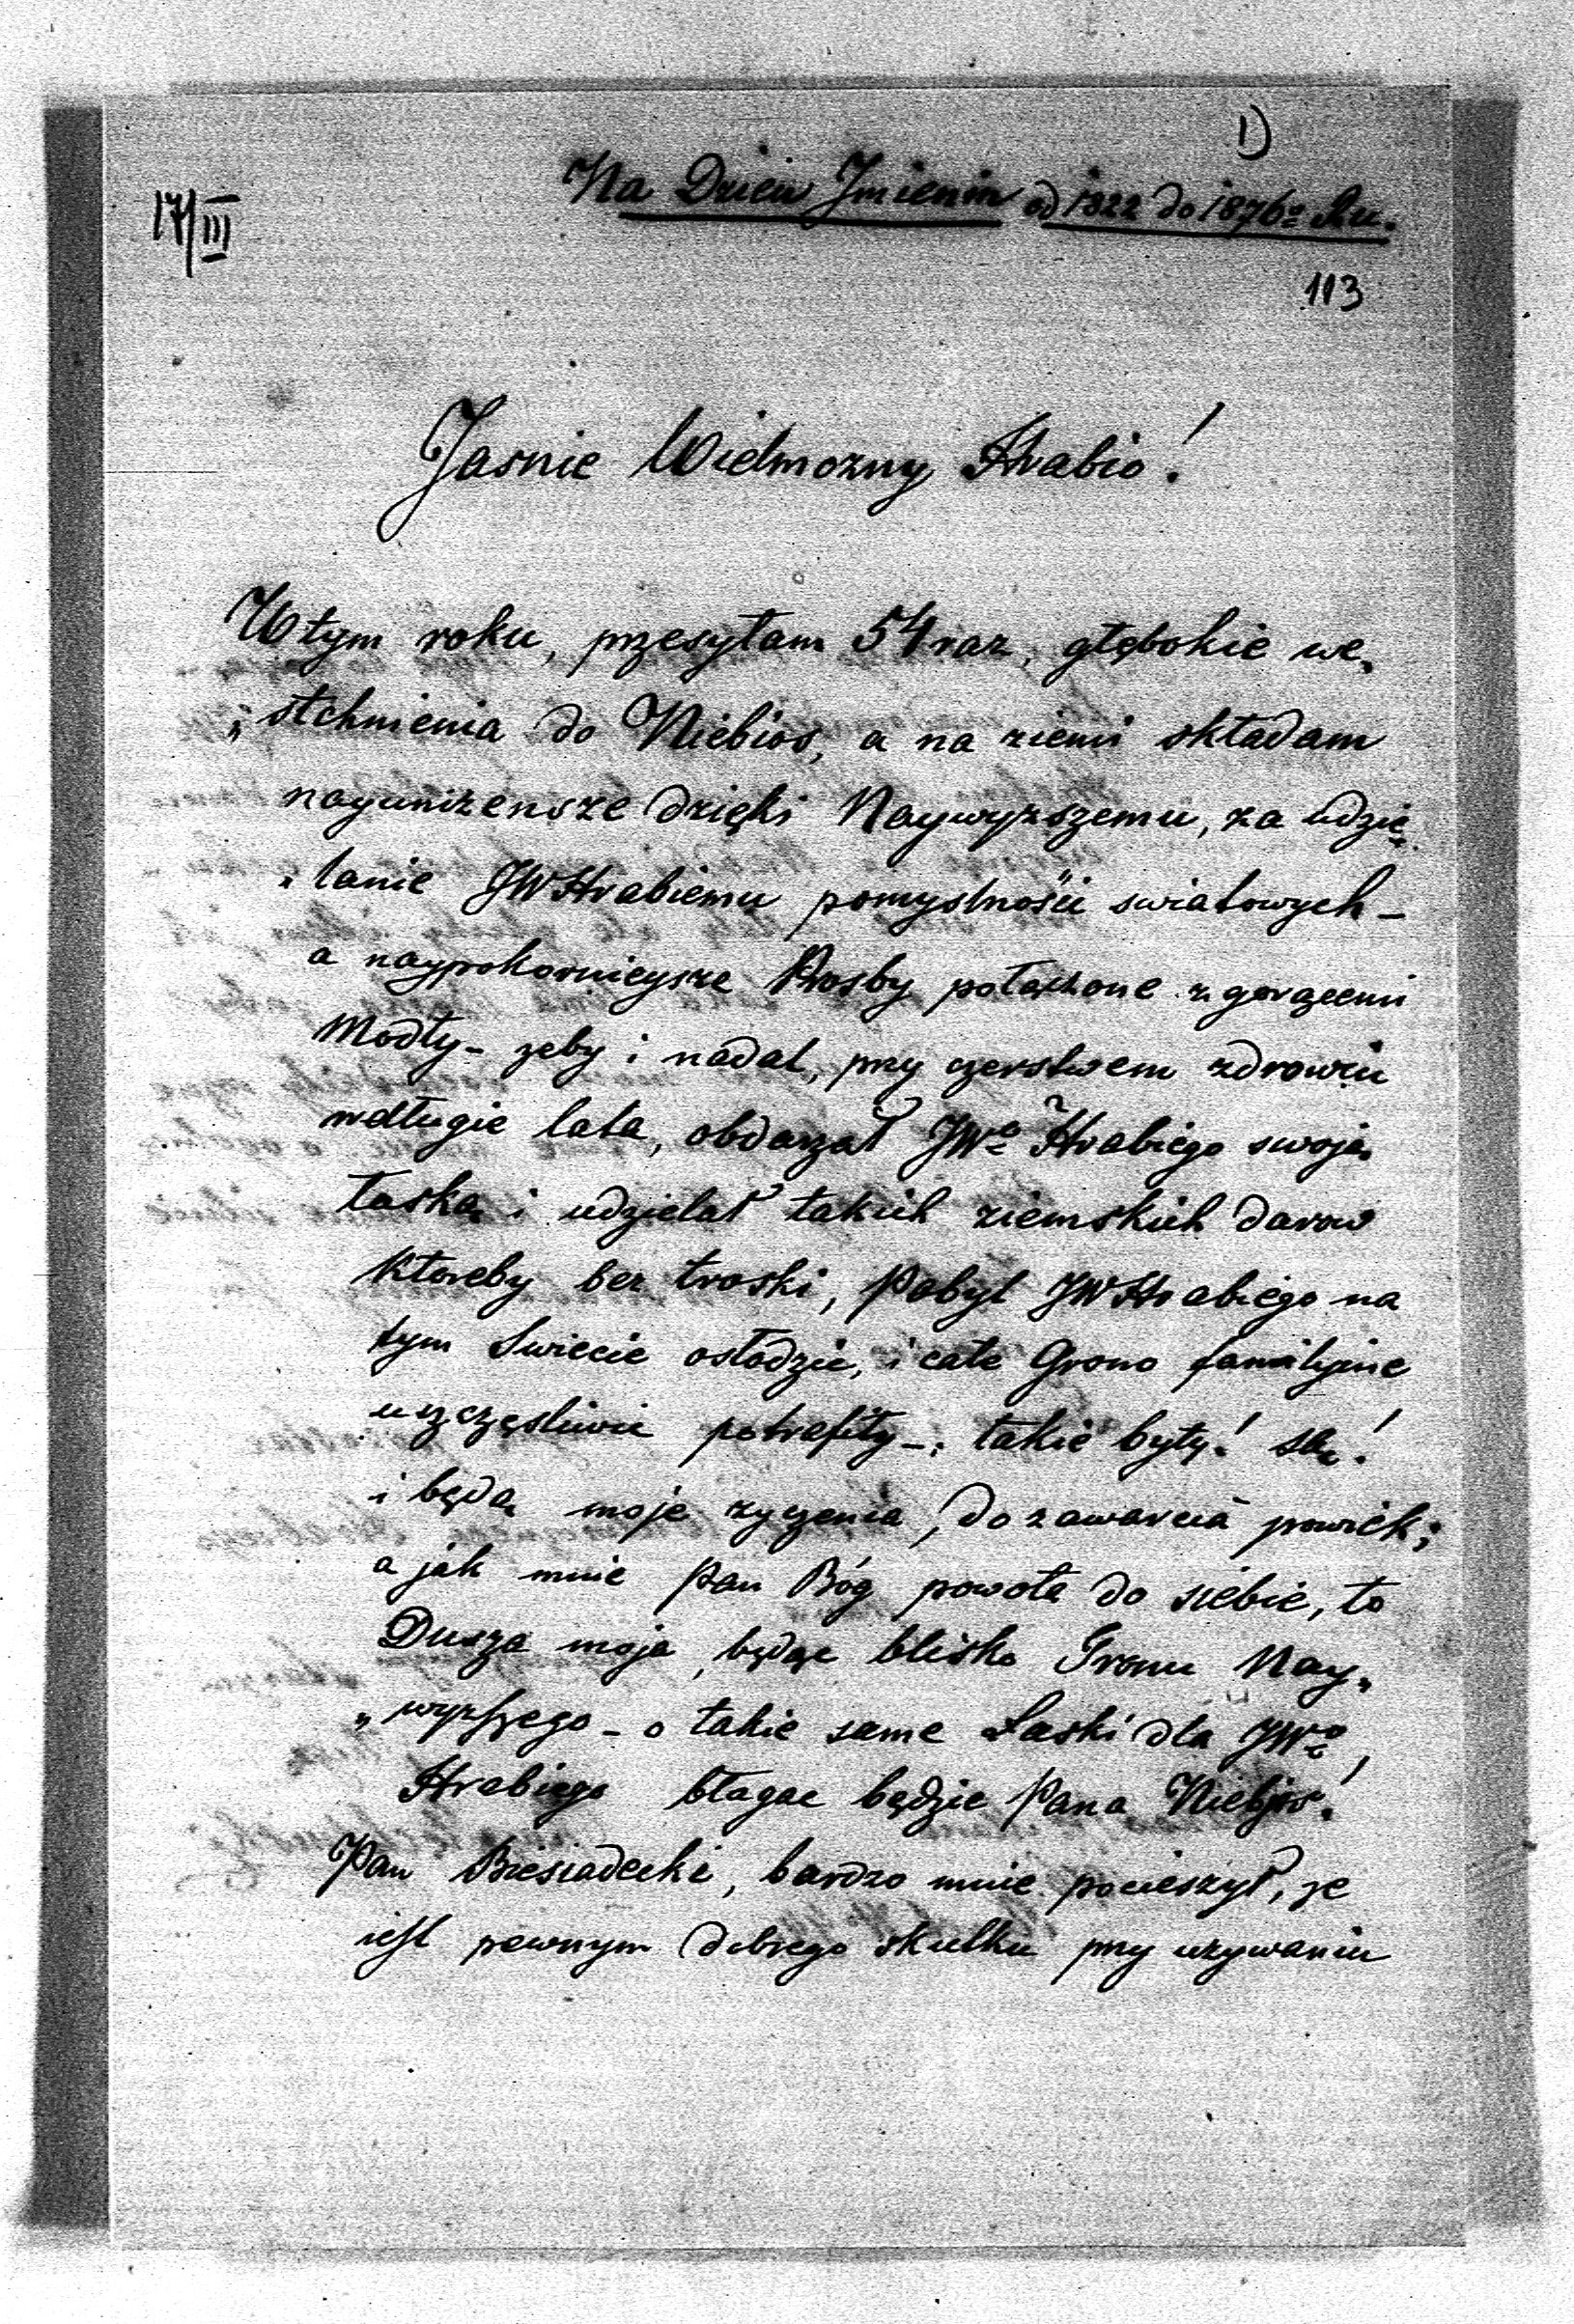 1)
Na Dzien Jmienin od 1822 do 1876º Ru.
17/III
113
Jasnie Wielmozny Hrabio!
W tym roku, przesyłam 54 raz, głębokie we„
„stchnienia do Niebios, a na ziemi składam
nayunizensze dzięki Naywyzszemu, za udzie„
„lanie JWHrabiemu pomyslnośii swiatowych –
a naypokornieysze Prosby połączone z gorącemi
Modły – zeby i nadal, przy czerstwem zdrowiu
w długie lata, obdarzał JWº Hrabiego swoją
łaską i udzielał takich ziemskich darow
ktoreby bez troski, Pobyt JWHrabiego na
tym Swiecie osłodzic, i całe Grono familyine
uszczęsliwic potrafiły –. takie były! są!
i będą moje zyczenia, do zawarcia powiek;
a jak mnie Pan Bóg powoła do siebie, to
Dusza moja będąc blisko Tronu Nay„
„wyzszego – o takie same Łaski dla JWº
Hrabiego błagac będzie Pana Niebios!
Pan Biesiadecki, bardzo mnie pocieszył, ze
iest pewnym dobrego skutku przy uzywaniu